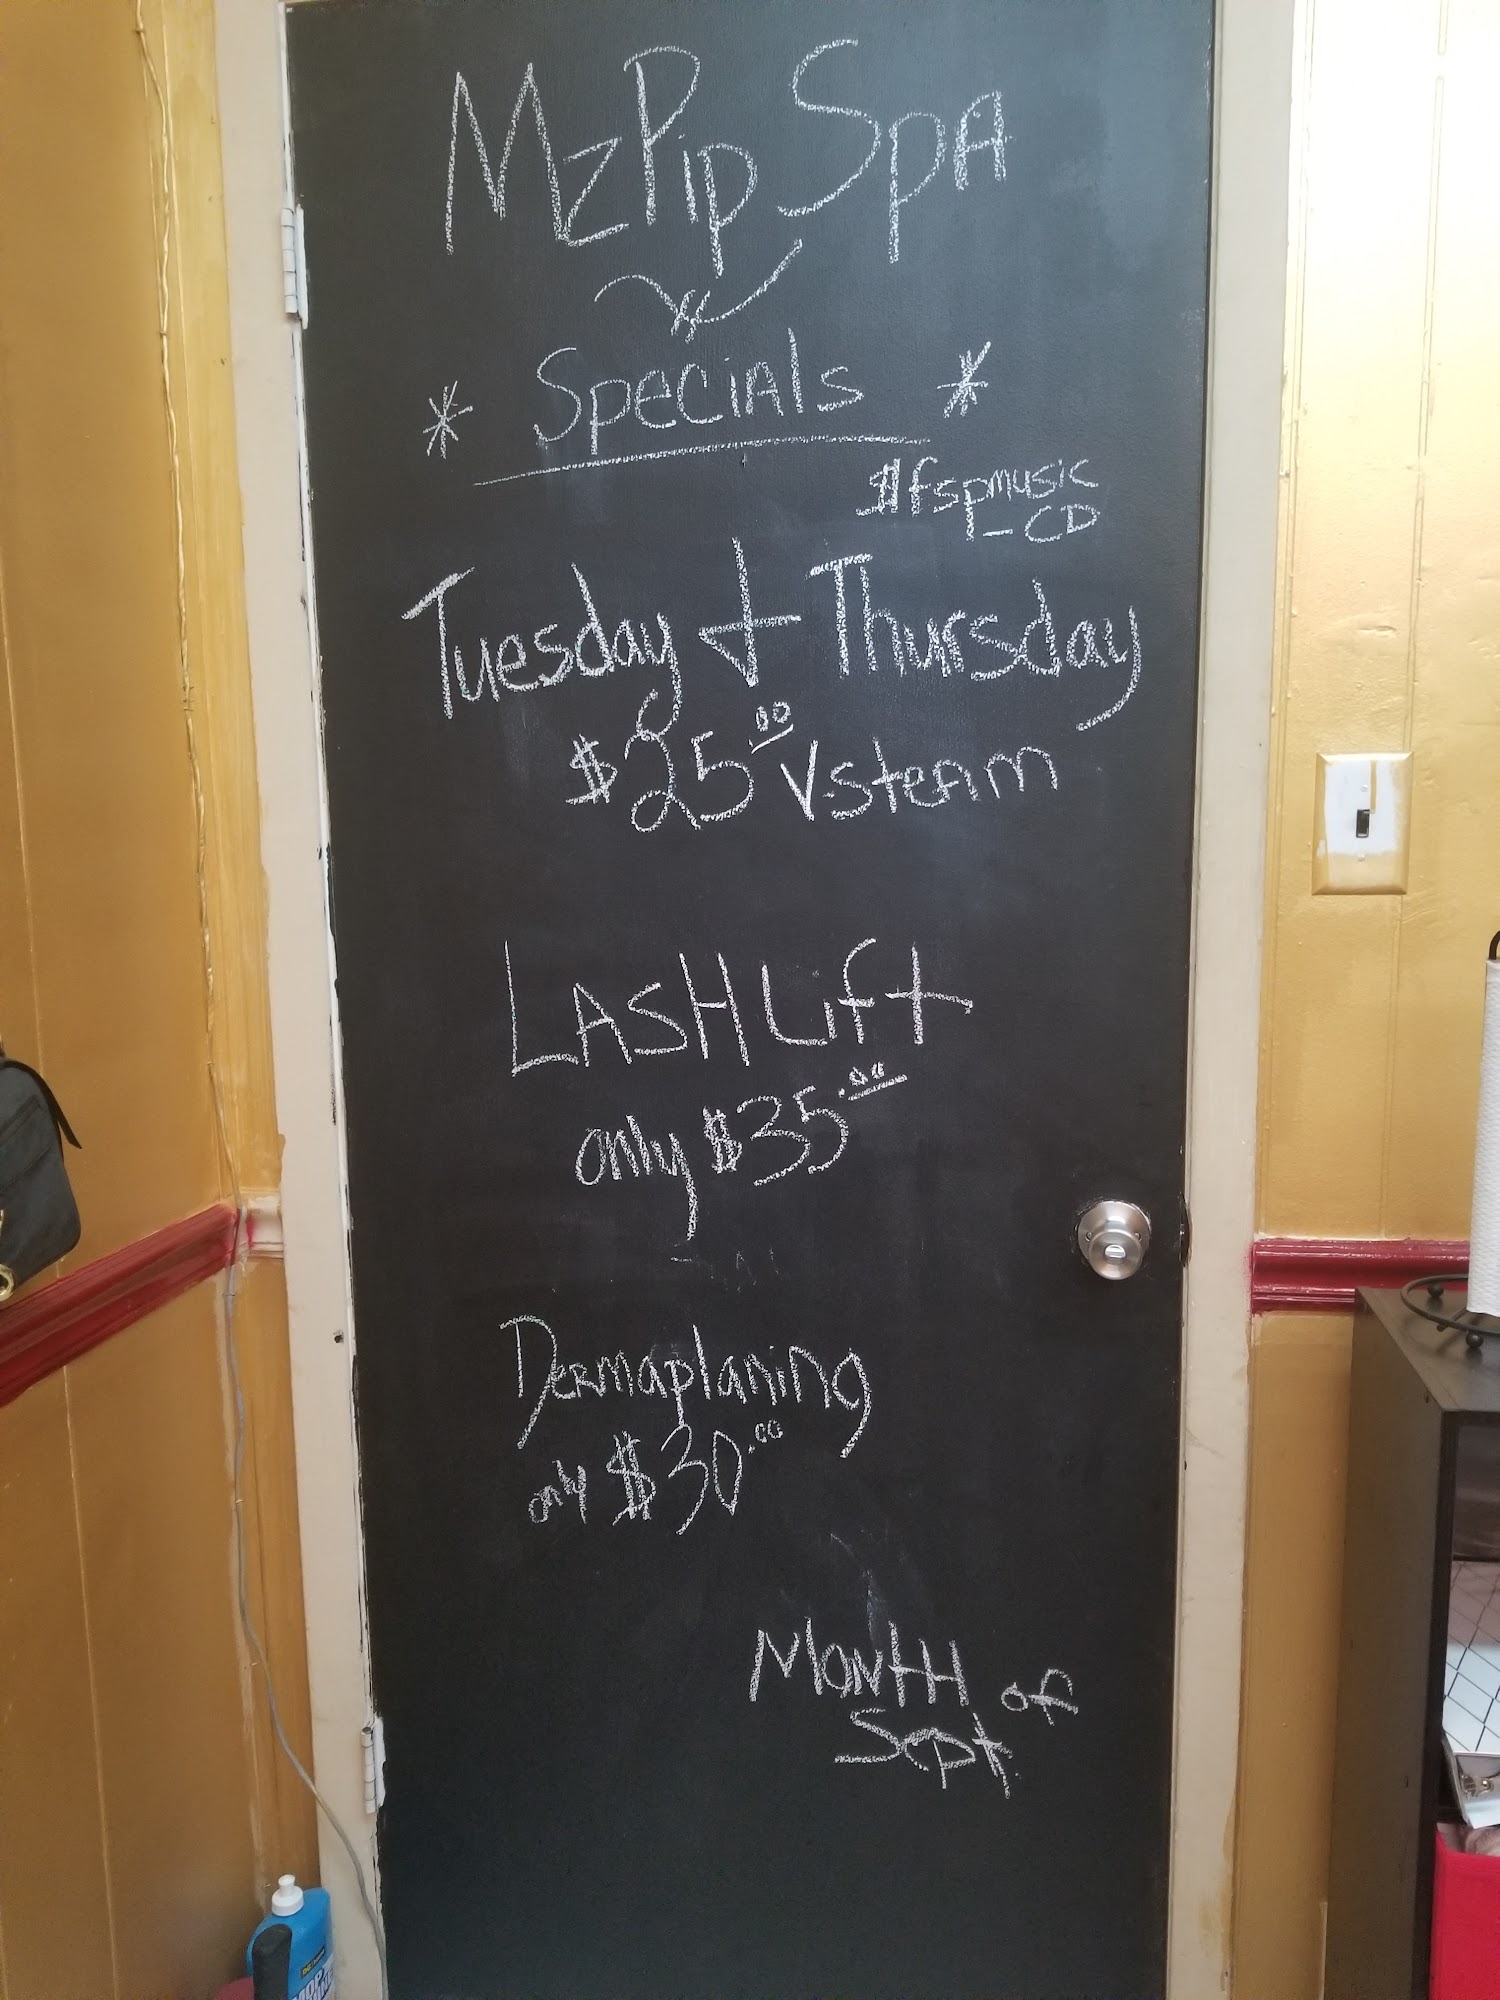 MzPip Spa
* Specials *
$fspmusic
_CD
Tuesday + Thursday
$25.00 V-steam
LASH Lift
only $35.00
Dermaplaning
only $30.00
Month of
Sept